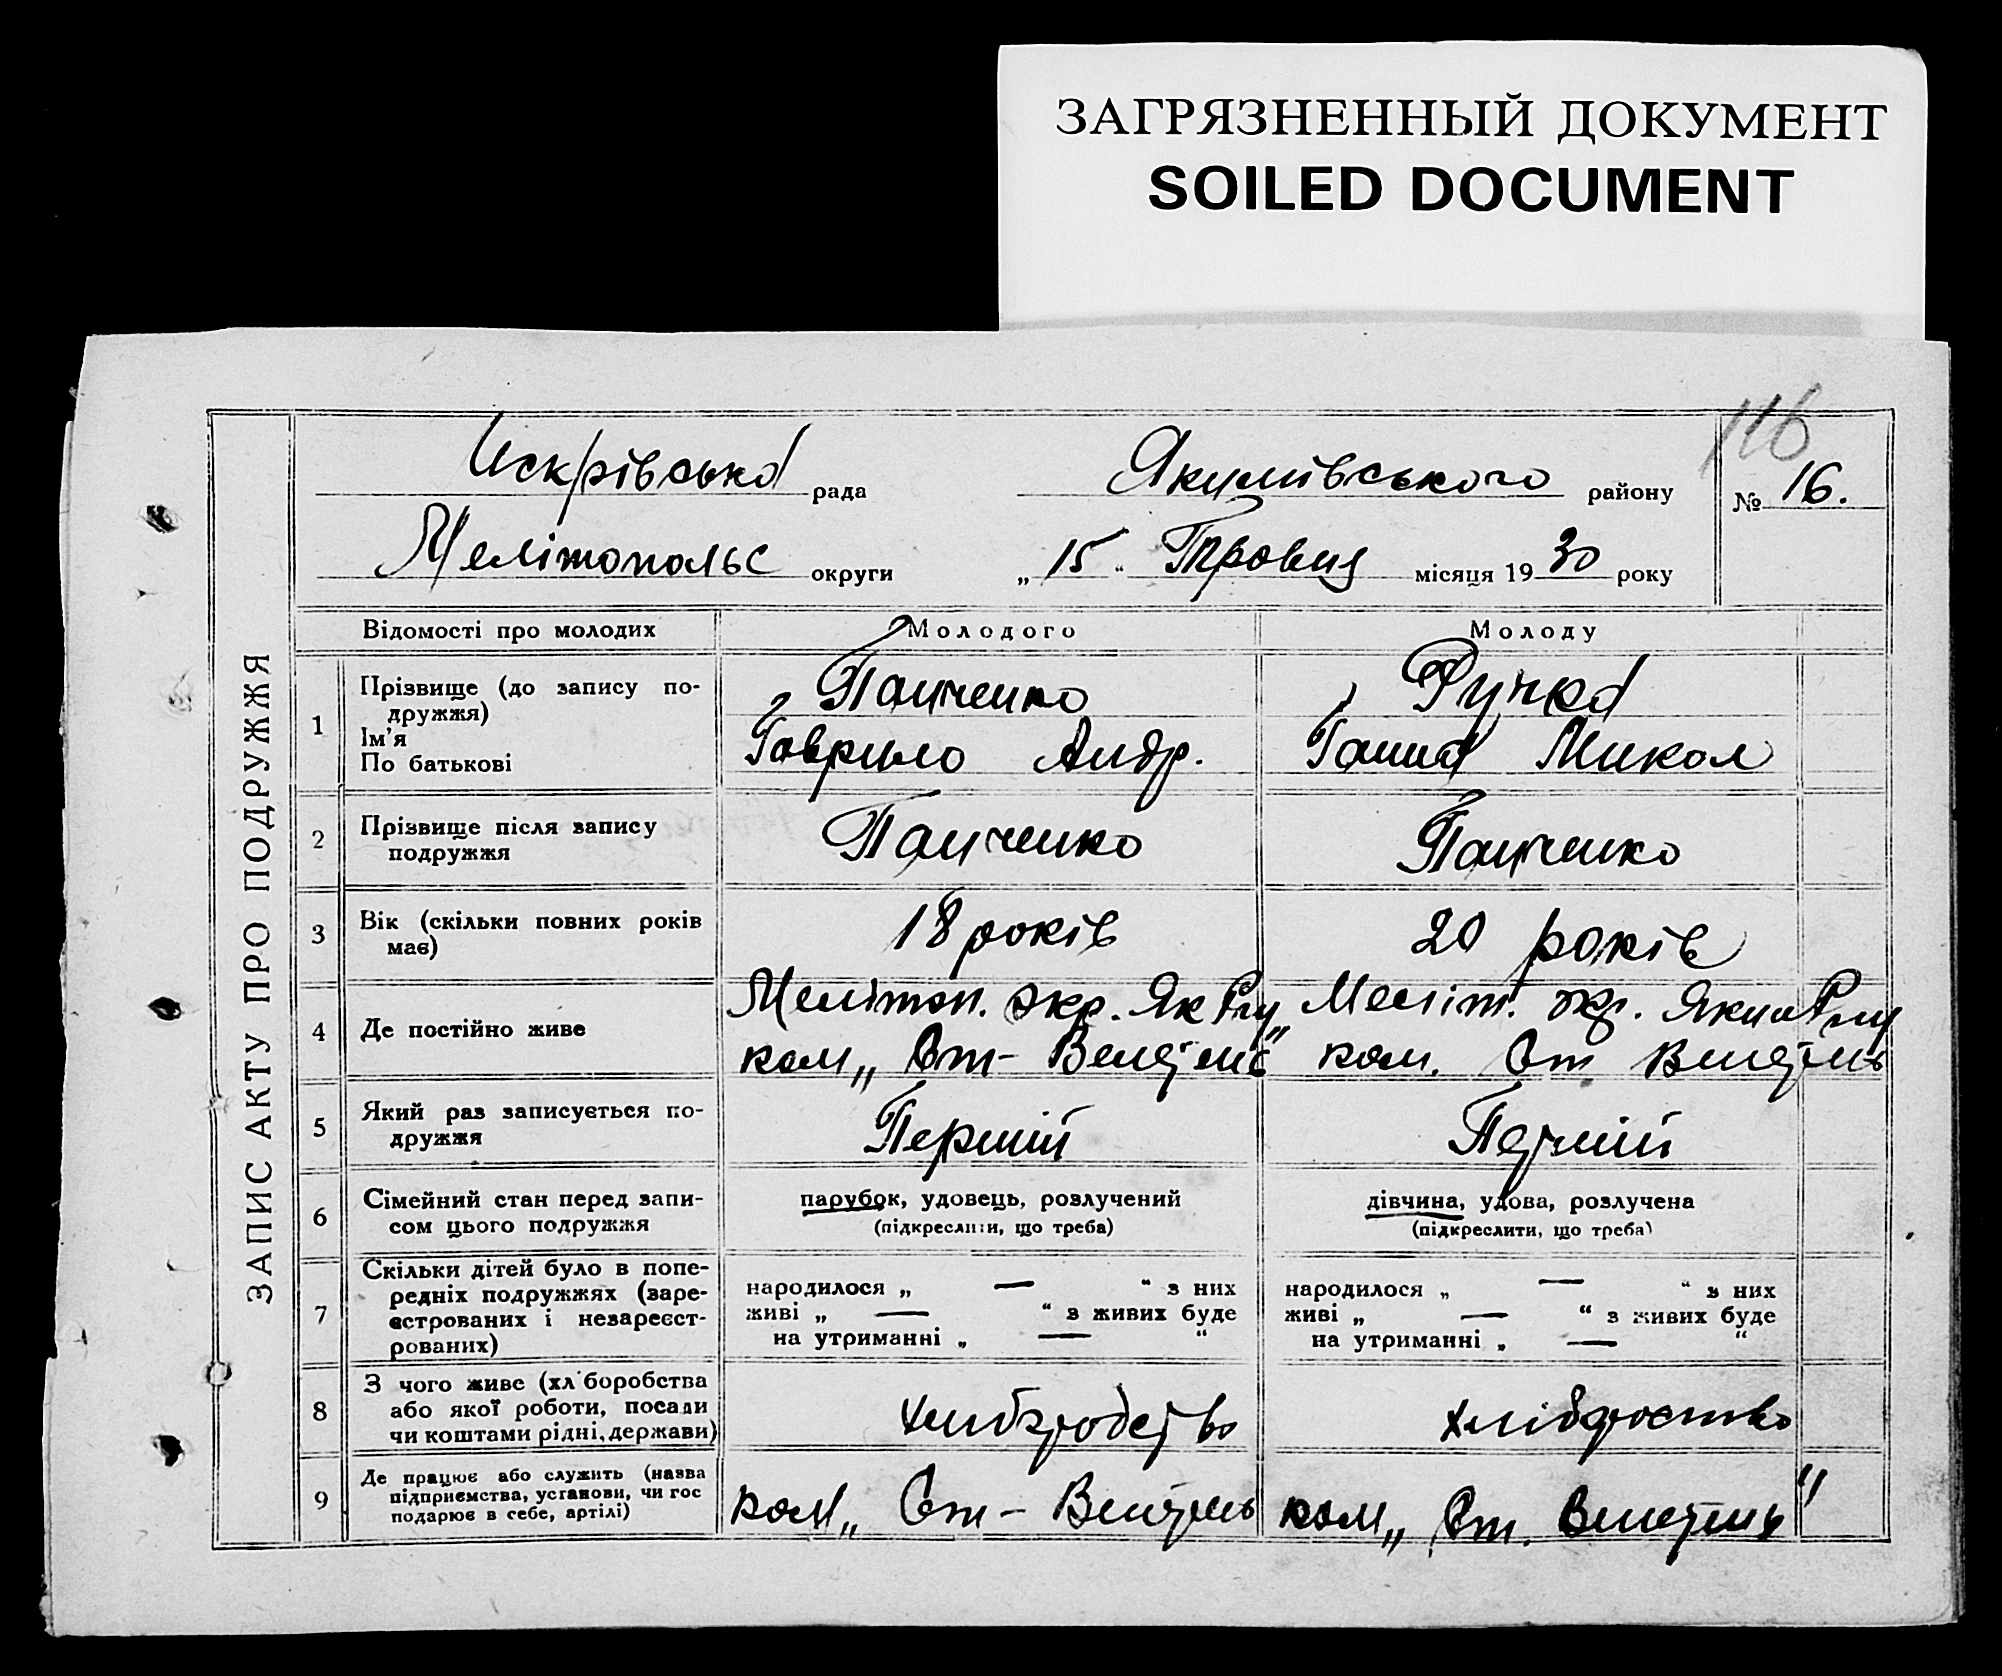 ЗАГРЯЗНЕННЫЙ ДОКУМЕНТ
SOILED DOCUMENT
116
ЗАПИС АКТУ ПРО ПОДРУЖЖЯ
Искрівська рада Якимівського району № 16.
Мелітопольс округи „15“ Травня місяця 1930 року
Відомості про молодих Молодого Молоду
1 Прізвище (до запису по-
дружжя)
Ім'я
По батькові
Панченко
Гаврило Андр.
Ручка
Ганна Микол
2 Прізвище після запису
подружжя
Панченко
Панченко
3 Вік (скільки повних років
має)
18 років
20 років
4 Де постійно живе
Мелітоп. окр. Як
ком„ От-
Меліт. окр.
ком. От
5 Який раз записується по-
дружжя
Перший
Перший
6 Сімейний стан перед запи-
сом цього подружжя
парубок, удовець, розлучений
(підкреслити, що треба)
дівчина, удова, розлучена
(підкреслити, що треба)
7 Скільки дітей було в попе-
редніх подружжях (заре-
єстрованих і незареєст-
рованих)
народилося „ — “ з них
живі „ — “ з живих буде
на утриманні „ — “
народилося „ — “ з них
живі „ — “ з живих буде
на утриманні „ — “
8 З чого живе (хліборобства
або якої роботи, посади
чи коштами рідні, держави)
9 Де працює або служить (назва
підприємства, установи, чи гос
подарює в себе, артілі)
ком„ От-
ком„ От.